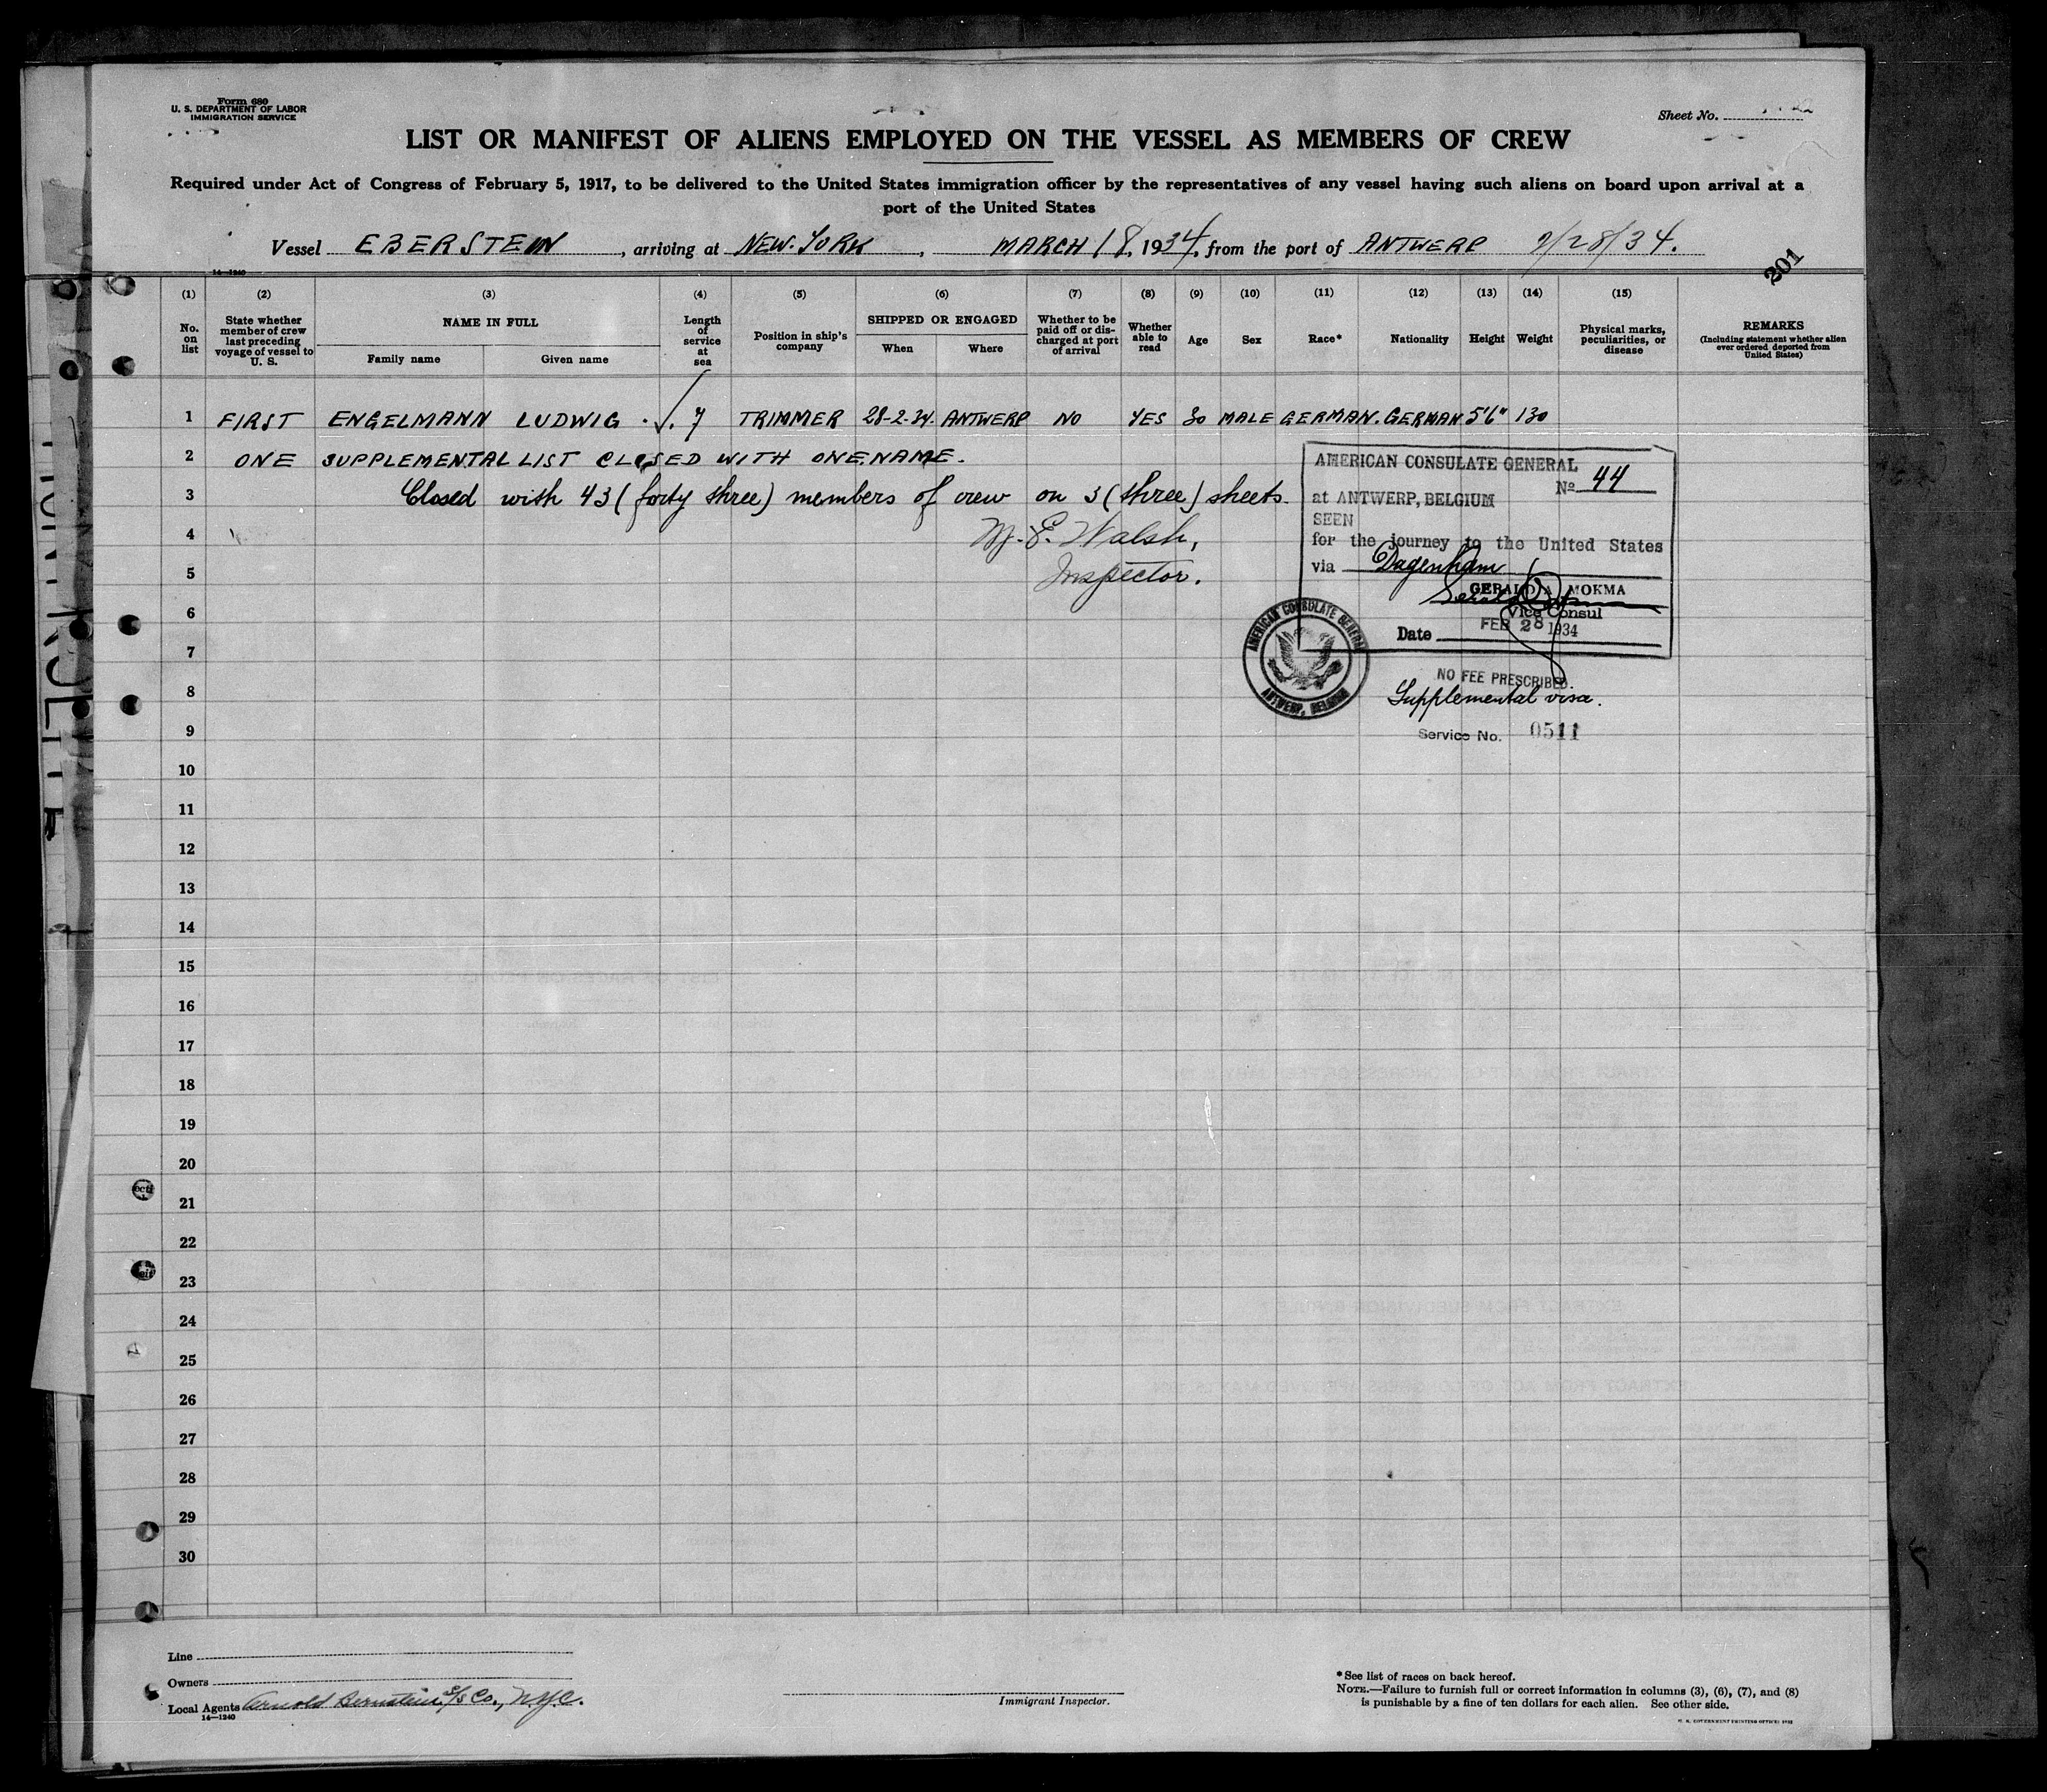 Form 680
U. S. DEPARTMENT OF LABOR
IMMIGRATION SERVICE
Sheet No.
LIST OR MANIFEST OF ALIENS EMPLOYED ON THE VESSEL AS MEMBERS OF CREW
Required under Act of Congress of February 5, 1917, to be delivered to the United States immigration officer by the representatives of any vessel having such aliens on board upon arrival at a
port of the United States
Vessel EBERSTEIN, arriving at NEW-YORK, MARCH 18, 1934, from the port of ANTWERP 2/28/34.
14-1240
201
(1) (2) (3) (4) (5) (6) (7) (8) (9) (10) (11) (12) (13) (14) (15)
No. on list
State whether member of crew last preceding voyage of vessel to U. S.
NAME IN FULL
Family name
Given name
Length of service at sea
Position in ship's company
SHIPPED OR ENGAGED
When
Where
Whether to be paid off or discharged at port of arrival
Whether able to read
Age
Sex
Race*
Nationality
Height
Weight
Physical marks, peculiarities, or disease
REMARKS
(Including statement whether alien ever ordered deported from United States)
1 FIRST ENGELMANN LUDWIG . 7 TRIMMER 28-2-34. ANTWERP NO YES 30 MALE GERMAN. GERMAN 5'6" 130
2 ONE SUPPLEMENTAL LIST CLOSED WITH ONE NAME.
3 Closed with 43 (forty three) members of crew on 3 (three) sheets.
4 M. E. Walsh,
5 Inspector.
6
7
8
9
10
11
12
13
14
15
16
17
18
19
20
21
22
23
24
25
26
27
28
29
30
AMERICAN CONSULATE GENERAL
No 44
at ANTWERP, BELGIUM
SEEN
for the journey to the United States
via Dagenham
GERALD A. MOKMA
Vice Consul
Date FEB 28 1934
AMERICAN CONSULATE GENERAL
ANTWERP, BELGIUM
NO FEE PRESCRIBED
Supplemental visa.
Service No. 0511
Line
Owners
Local Agents Arnold Bernstein S/S Co., N.Y.C.
14-1240
Immigrant Inspector.
*See list of races on back hereof.
NOTE.—Failure to furnish full or correct information in columns (3), (6), (7), and (8)
is punishable by a fine of ten dollars for each alien. See other side.